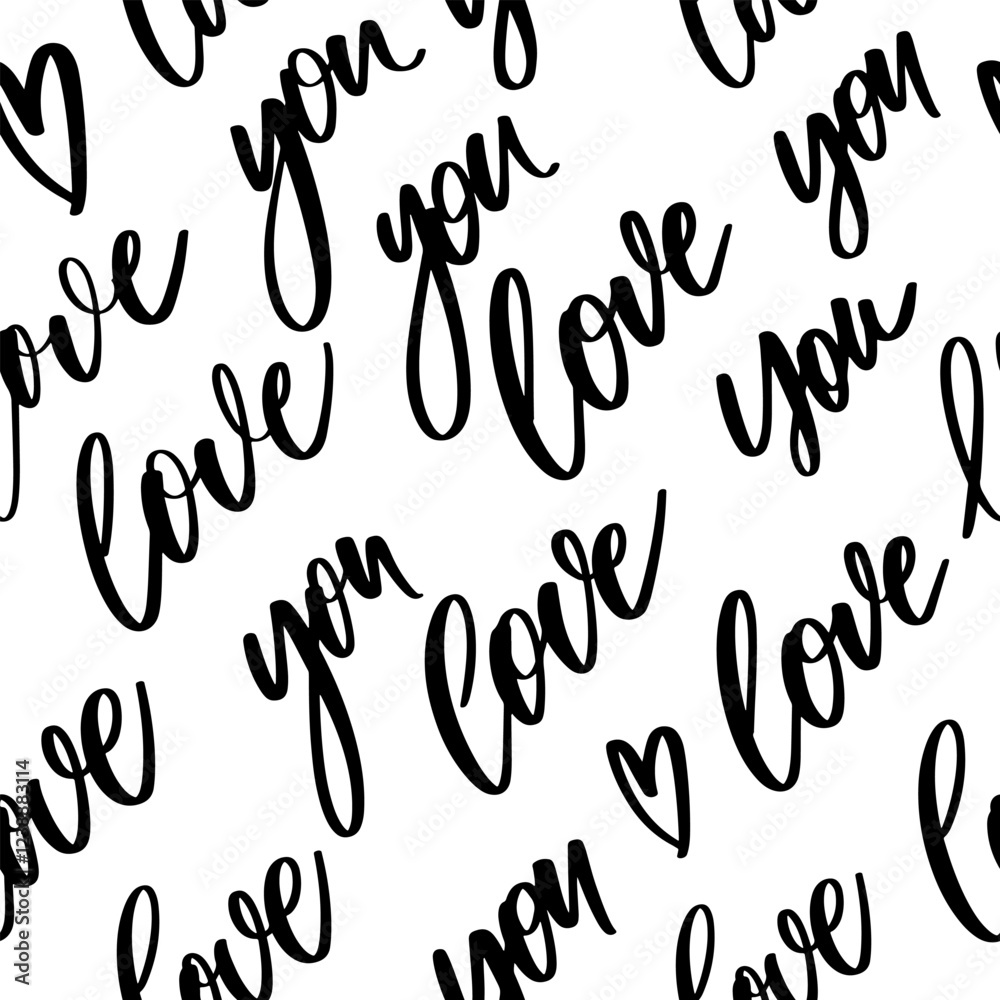 love
you
you
love
you
you
love
love
you
love
love
you
love
love
love
you
love
love
Adobe Stock | #1238883114